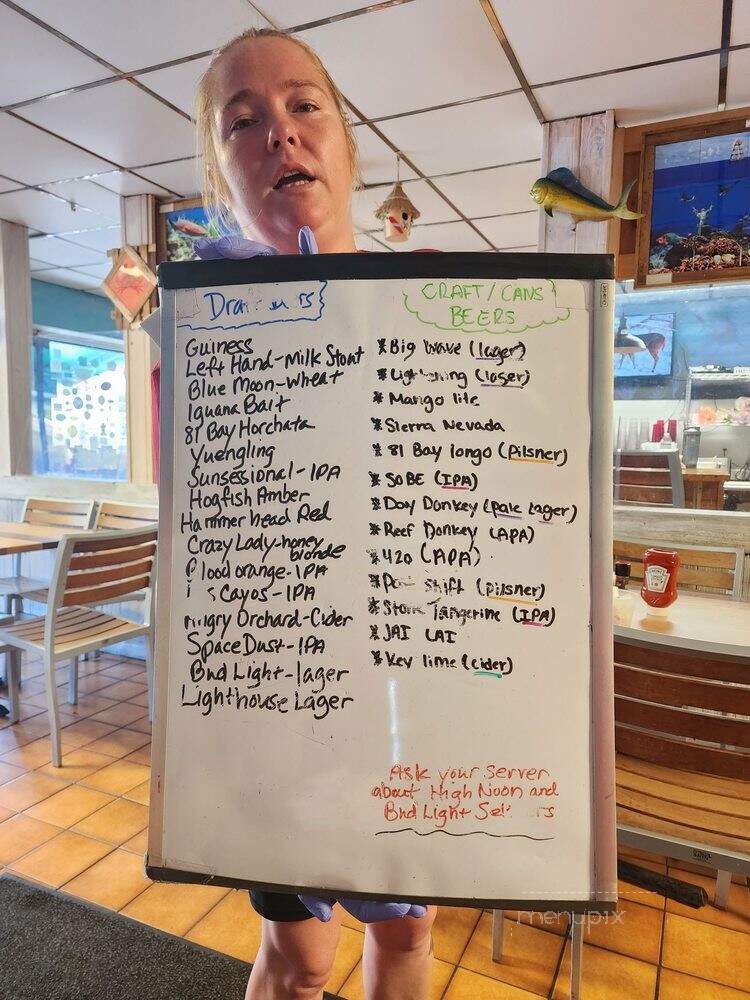 Guiness
Left Hand-Milk Stout
Blue Moon-Wheat
Iguana Bait
81 Bay Horchata
Yuengling
Sunsessional-IPA
Hogfish Amber
Hammerhead Red
Crazy Lady-honey
blonde
Blood orange-IPA
Cayos-IPA
Angry Orchard-Cider
Space Dust-IPA
Bud Light-lager
Lighthouse Lager
CRAFT/CANS
BEERS
*Big Wave (lager)
*Lightening (lager)
*Mango lite
*Sierra Nevada
*81 Bay longo (Pilsner)
*SOBE (IPA)
*Day Donkey (pale lager)
*Reef Donkey (APA)
*420 (APA)
shift (pilsner)
*Stone Tangerine (IPA)
*JAI LAI
*Key lime (cider)
Ask your server
about High Noon and
Bud Light
HEINZ
menupix